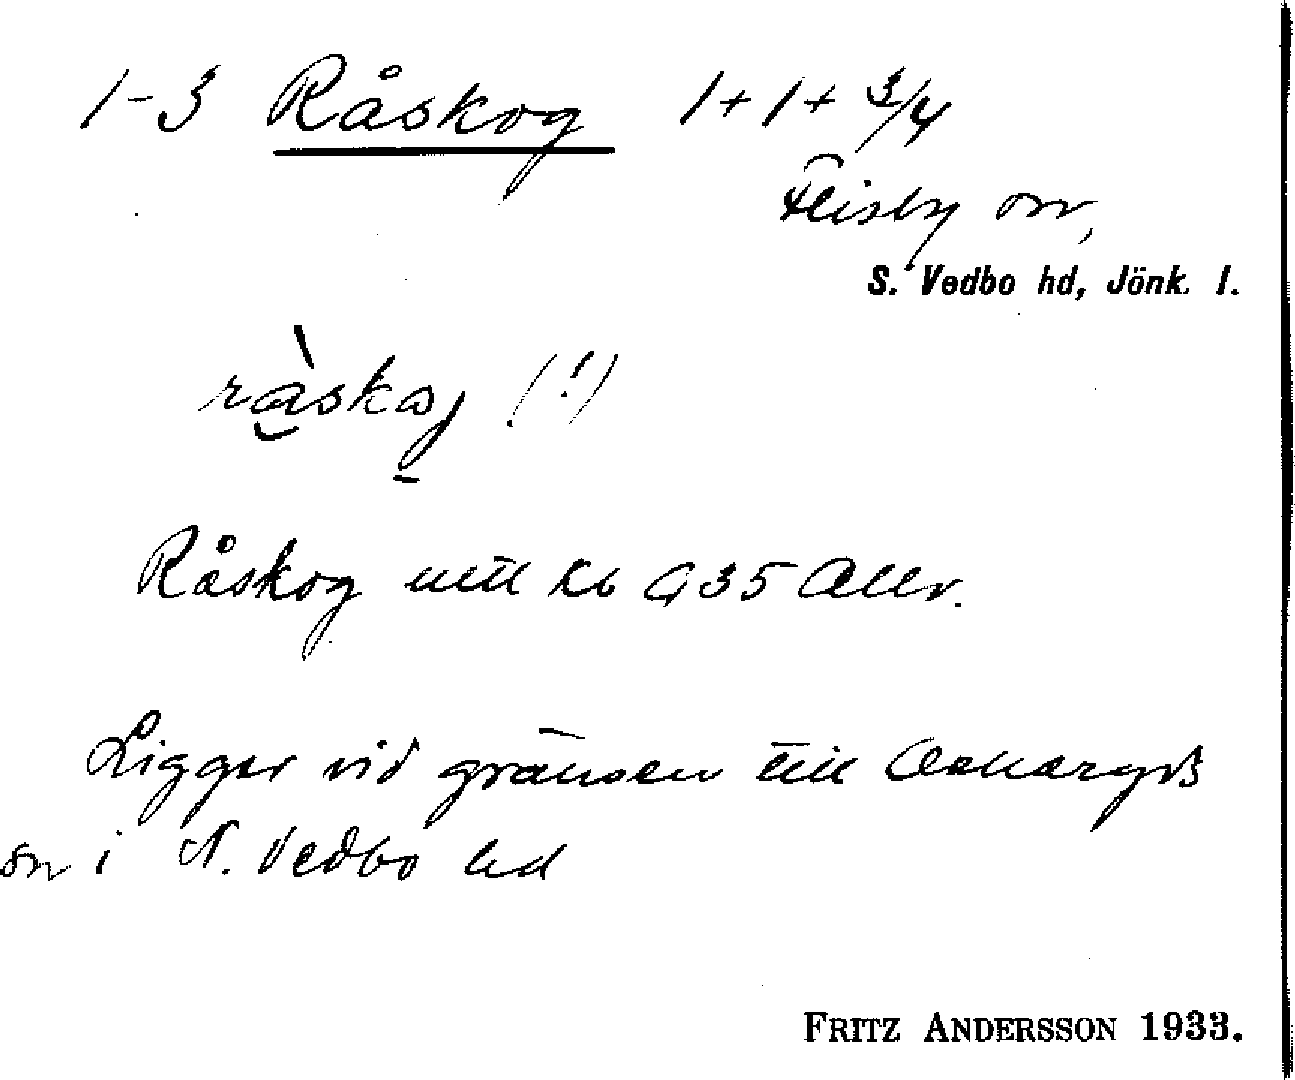 1-3 Råskog 1+1+3/4
Flisby sn,
S. Vedbo hd, Jönk. l.
råskoj (!)
Råskog utt kb 435
Ligger vid gränsen till Askeryds
sn i N. Vedbo hd
FRITZ ANDERSSON 1933.